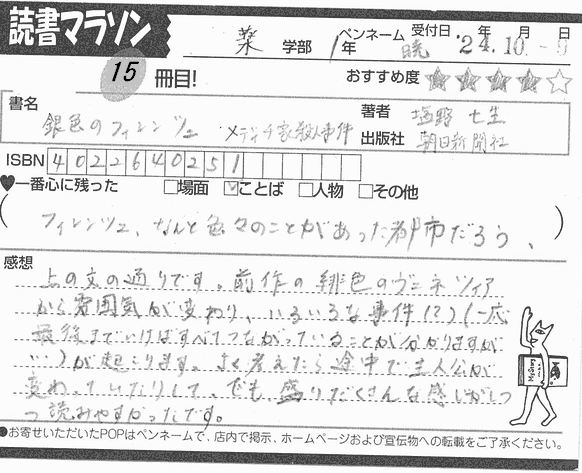 読書マラソン
薬 学部 1年 ペンネーム 暁 受付日 '24年10月-9日
15冊目! おすすめ度 ★★★★☆
書名 銀色のフィレンツェ メディチ家殺人事件 著者 塩野七生
出版社 朝日新聞社
ISBN 4022640251
♥一番心に残った □場面 ☑ことば □人物 □その他
(フィレンツェ、なんと色々のことがあった都市だろう、)
感想 上の文の通りです。前作の緋色のヴェネツィア
から雰囲気が変わり、いろいろな事件(?)(一応
最後までいけばすべてつながっていることが分かりますが
…)が起こります。よく考えたら途中で主人公が
変わっていたりして、でも、盛りだくさんな感じがしつ
つ読みやすかったです。
MeDams
●お寄せいただいたPOPはペンネームで、店内で掲示、ホームページおよび宣伝物への転載をご了承ください。